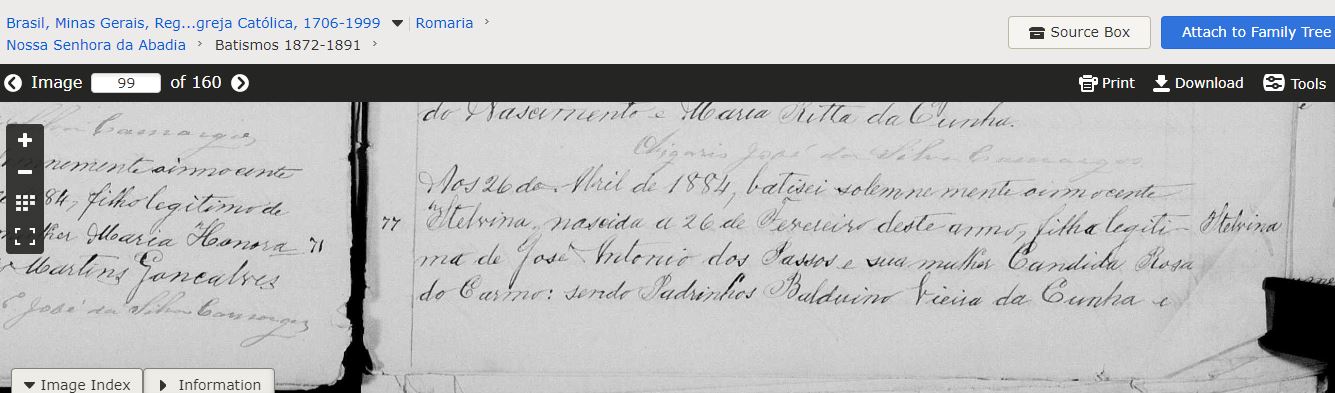 Brasil, Minas Gerais, Reg...greja Católica, 1706-1999
Romaria
Nossa Senhora da Abadia
Batismos 1872-1891
Source Box
Attach to Family Tree
Image 99 of 160
Print
Download
Tools
Camargos
innocente
84, filho legitimo de
Maria Honora 71
Martins Goncalves
José da Silva Camargos
do Nascimento e Maria Ritta da Cunha.
Vigario José da Silva Camargos
Aos 26 de Abril de 1884, batisei solemnemente a innocente
77 Etelvina, nascida a 26 de Fevereiro deste anno, filha legiti- Etelvina
ma de José Antonio dos Passos e sua mulher Candida Rosa
do Carmo: sendo Padrinhos Balduino Vieira da Cunha e
Image Index
Information